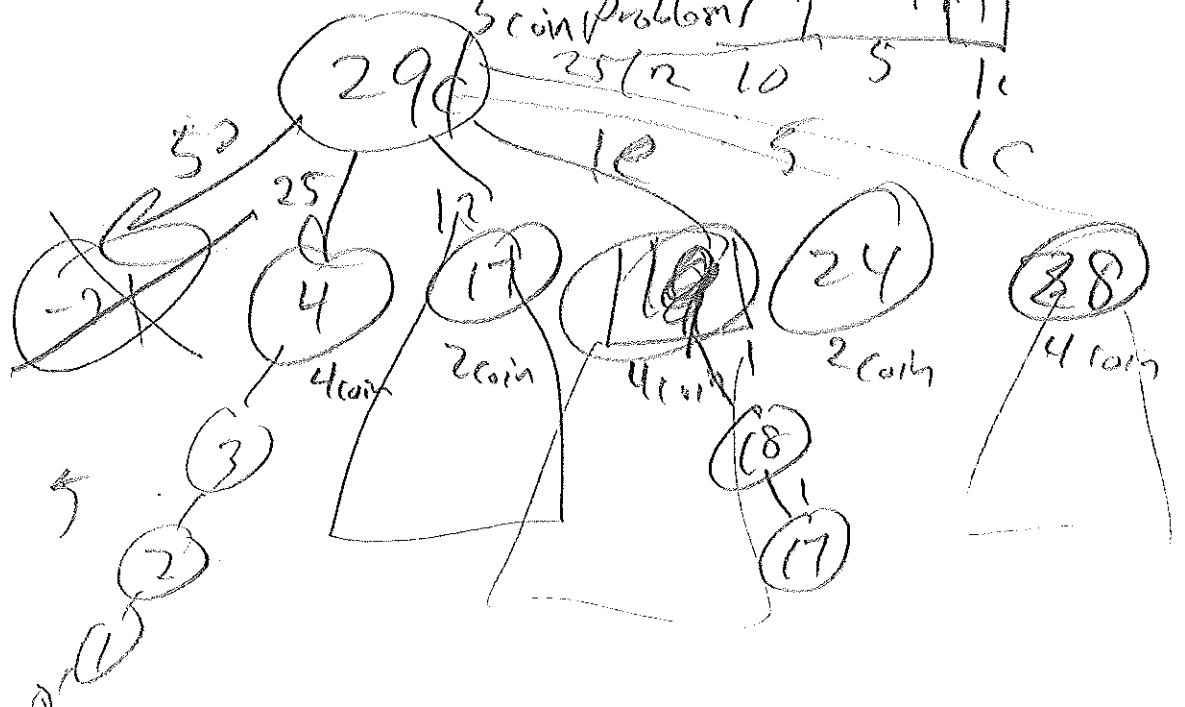 coin Problem
29c
25 12 10 5 1c
50 25 12 10 5 1c
-21 4 17 19 24 28
4coin 2coin 4coin 2coin 4coin
3 18
2 17
1
0